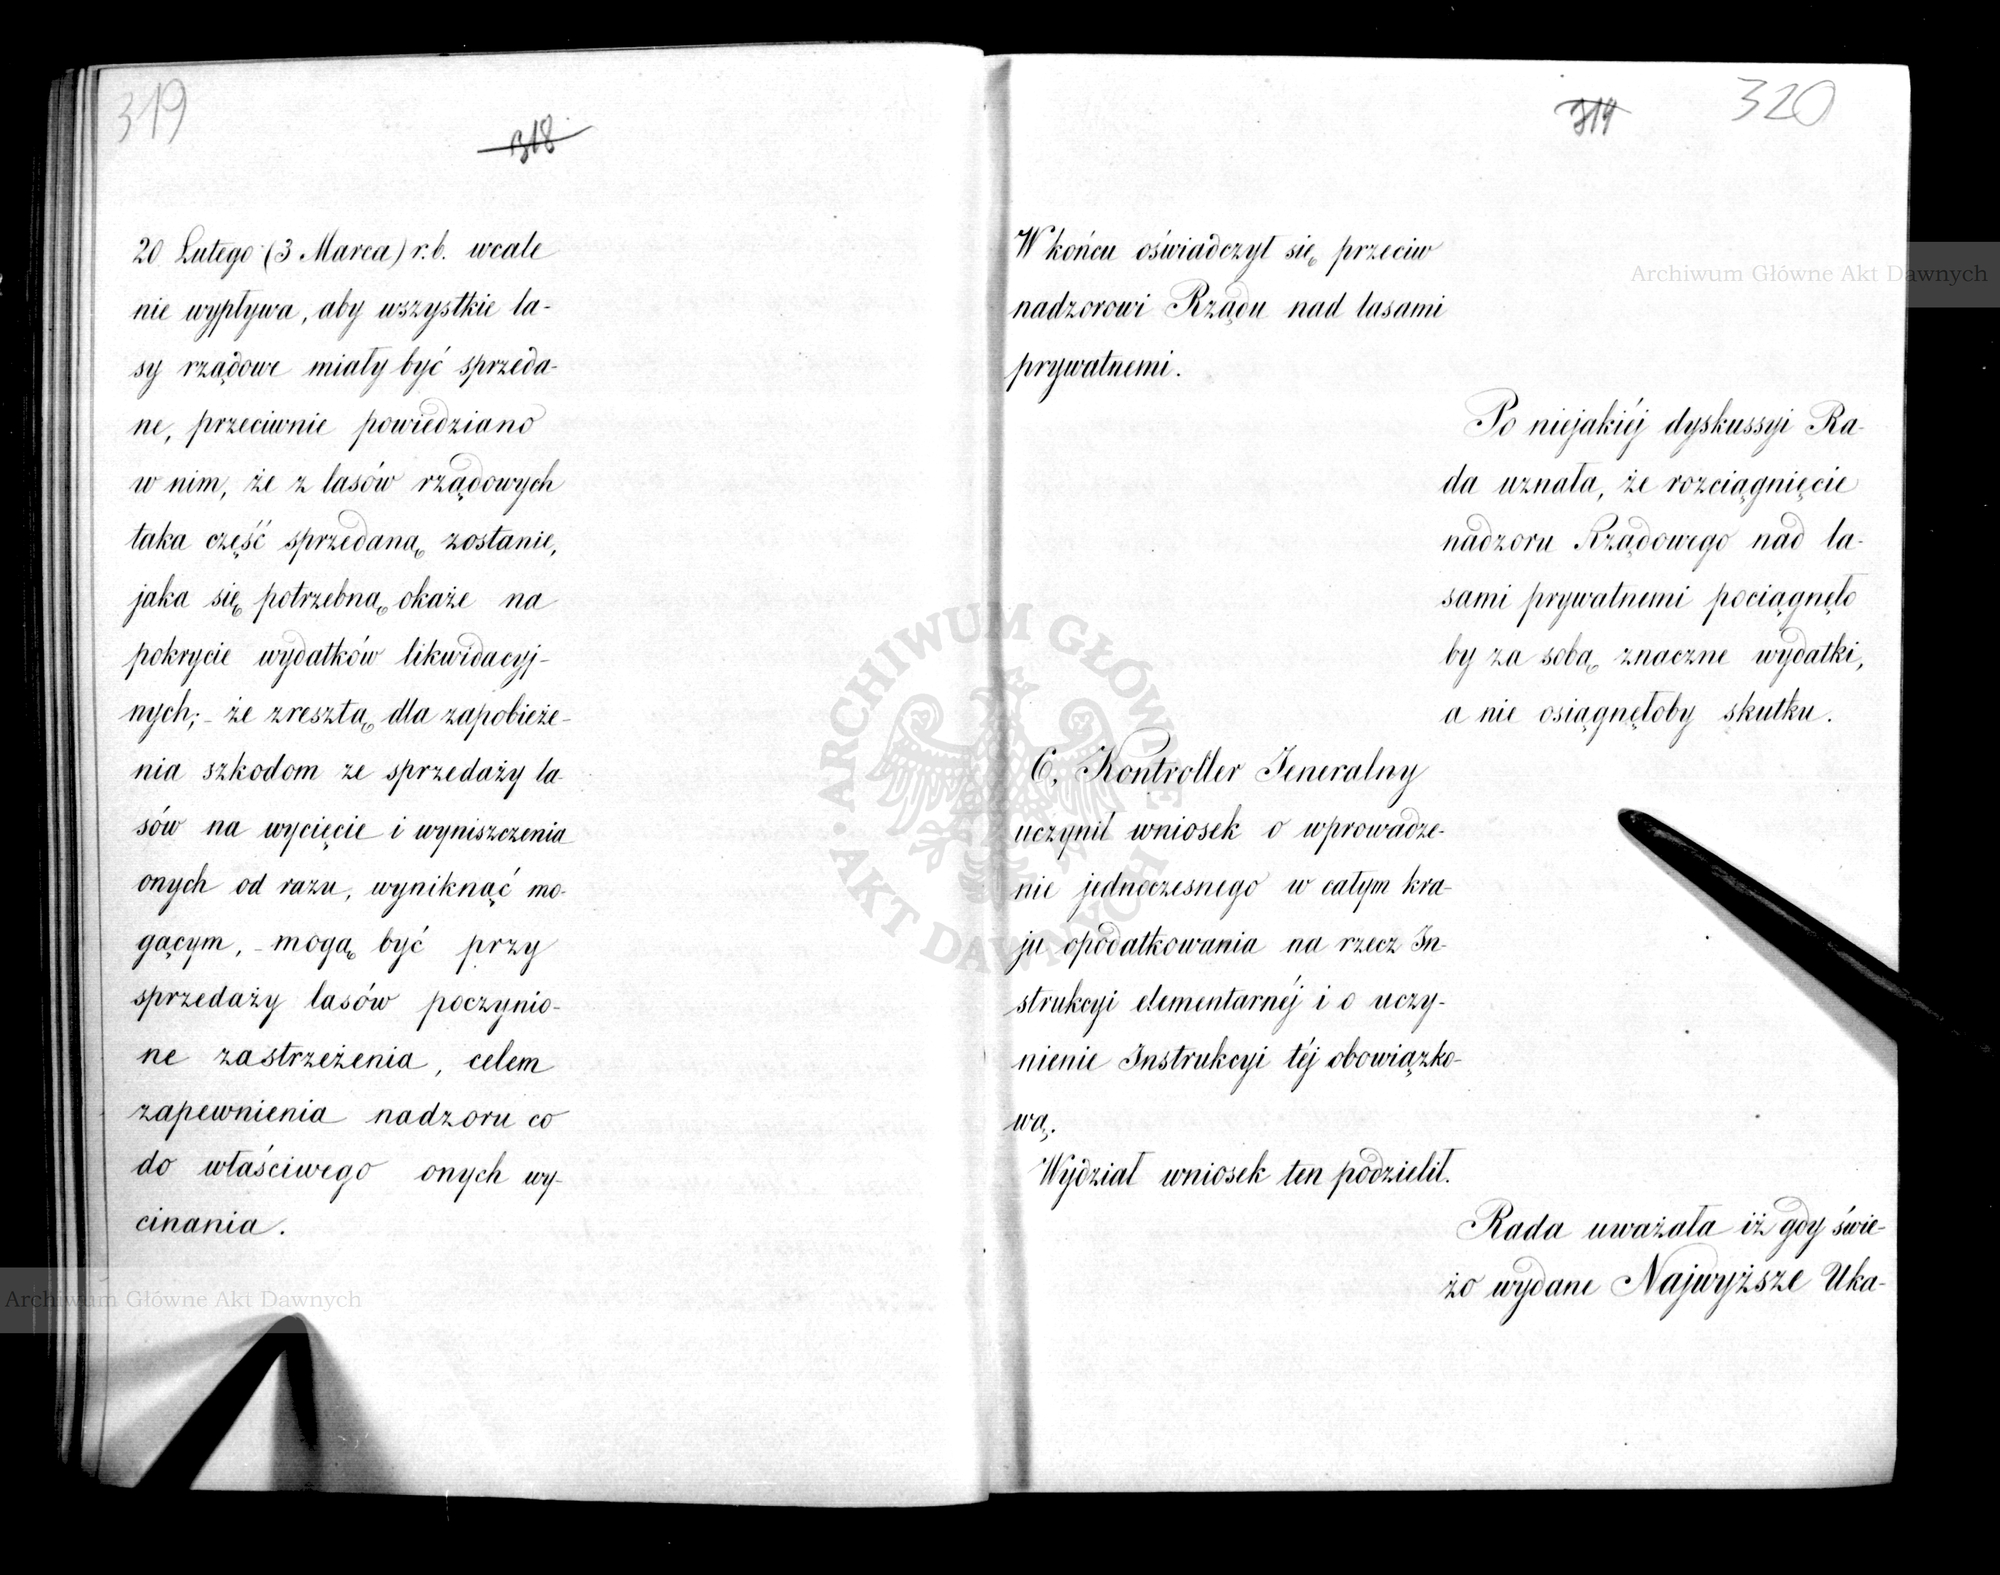 319
318
20 Lutego (3 Marca) r. b. wcale
nie wypływa, aby wszystkie la-
sy rządowe miały być sprzeda-
ne, przeciwnie powiedziano
w nim, że z lasów rządowych
taka część sprzedaną zostanie,
jaka się potrzebną okaże na
pokrycie wydatków likwidacyj-
nych; - że zresztą dla zapobieże-
nia szkodom ze sprzedaży la-
sów na wycięcie i wyniszczenia
onych od razu, wyniknąć mo-
gącym, - mogą być przy
sprzedaży lasów poczynio-
ne zastrzeżenia, celem
zapewnienia nadzoru co
do właściwego onych wy-
cinania.
319
320
W końcu oświadczył się przeciw
nadzorowi Rządu nad lasami
prywatnemi.
Po niejakiéj dyskussyi Ra-
da uznała, że rozciągnięcie
nadzoru Rządowego nad la-
sami prywatnemi pociągnęło
by za sobą znaczne wydatki,
a nie osiągnęłoby skutku.
6, Kontroller Jeneralny
uczynił wniosek o wprowadze-
nie jednoczesnego w całym kra-
ju opodatkowania na rzecz In-
strukcyi elementarnéj i o uczy-
nienie Instrukcyi téj obowiązko-
wą.
Wydział wniosek ten podzielił.
Rada uważała iż gdy świe-
żo wydane Najwyższe Uka-
Archiwum Główne Akt Dawnych
Archiwum Główne Akt Dawnych
ARCHIWUM GŁÓWNE AKT DAWNYCH